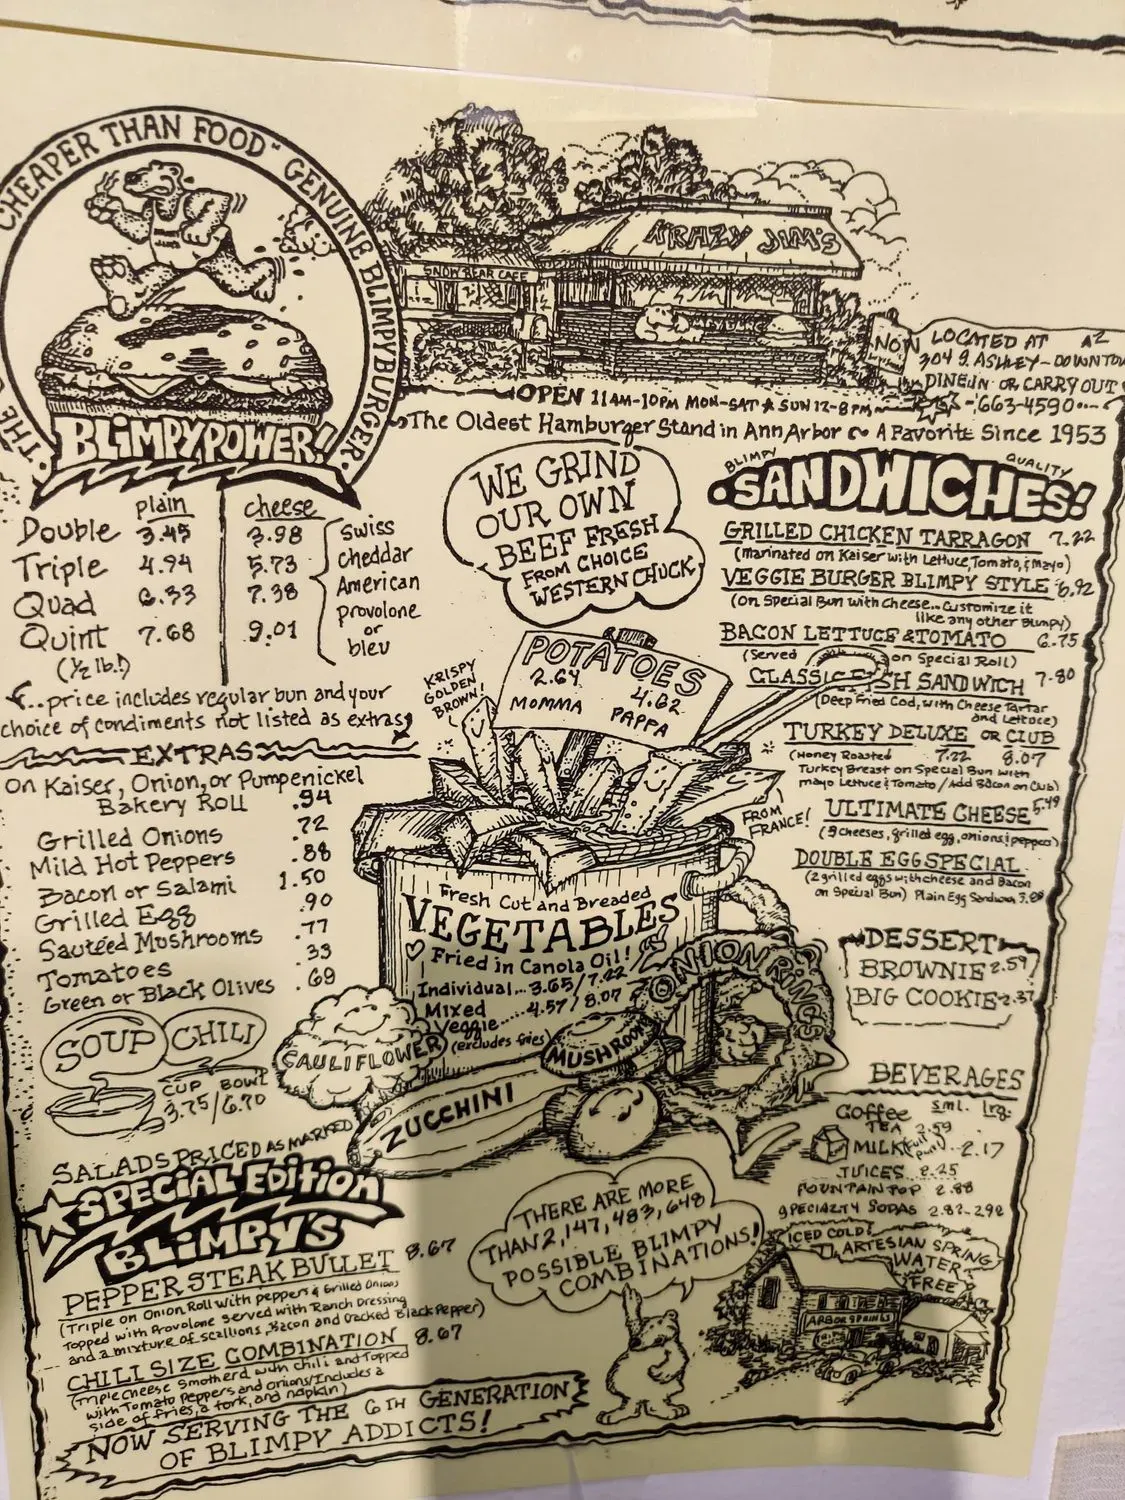 CHEAPER THAN FOOD" GENUINE BLIMPYBURGER
THE
BLIMPY POWER!
SNOW BEAR CAFE
KRAZY JIM'S
NOW LOCATED AT A2
304 S. ASHLEY-DOWNTOW
DINE IN OR CARRY OUT
663-4590
OPEN 11AM-10PM MON-SAT ★ SUN 12-8 PM
The Oldest Hamburger Stand in Ann Arbor ~ A Favorite Since 1953
plain cheese
Double 3.45 3.98
Triple 4.94 5.73
Quad 6.33 7.38
Quint 7.68 9.01
(½ lb.!)
Swiss
cheddar
American
provolone
or
bleu
...price includes regular bun and your
choice of condiments not listed as extras
EXTRAS
on Kaiser, Onion, or Pumpenickel
Bakery Roll .94
Grilled Onions .72
Mild Hot Peppers .88
Bacon or Salami 1.50
Grilled Egg .90
Sautéed Mushrooms .77
Tomatoes .33
Green or Black Olives .69
SOUP CHILI
CUP BOWL
3.75/6.70
SALADS PRICED AS MARKED
SPECIAL EDITION
BLIMPY'S
PEPPER STEAK BULLET 8.67
(Triple on Onion Roll with peppers & Grilled Onions
Topped with Provolone Served with Ranch Dressing
and a mixture of scallions, Bacon and Cracked Black Pepper)
CHILI SIZE COMBINATION 8.67
(Triple cheese Smotherd with chili and Topped
with Tomato Peppers and Onions/Includes a
side of fries, a fork, and napkin)
NOW SERVING THE 6TH GENERATION
OF BLIMPY ADDICTS!
WE GRIND
OUR OWN
BEEF FRESH
FROM CHOICE
WESTERN CHUCK
KRISPY
GOLDEN
BROWN!
POTATOES
2.64 4.62
MOMMA PAPPA
FROM
FRANCE!
Fresh Cut and Breaded
VEGETABLES
Fried in Canola Oil!
Individual...3.65/7.22
Mixed
Veggie.....4.57/8.07
(excludes fries)
ONION RINGS
CAULIFLOWER
MUSHROOM
ZUCCHINI
THERE ARE MORE
THAN 2,147,483,648
POSSIBLE BLIMPY
COMBINATIONS!
BLIMPY QUALITY
SANDWICHES!
GRILLED CHICKEN TARRAGON 7.22
(marinated on Kaiser with Lettuce, Tomato, & Mayo)
VEGGIE BURGER BLIMPY STYLE 6.92
(On Special Bun with Cheese...Customize it
like any other Blimpy)
BACON LETTUCE & TOMATO 6.75
(Served on Special Roll)
CLASSIC FISH SANDWICH 7.80
(Deep Fried Cod, with Cheese Tartar
and Lettuce)
TURKEY DELUXE OR CLUB
(Honey Roasted 7.22 8.07
Turkey Breast on Special Bun with
mayo Lettuce & Tomato/Add Bacon on Club)
ULTIMATE CHEESE 5.49
(3 cheeses, grilled egg, onions & peppers)
DOUBLE EGG SPECIAL
(2 grilled eggs with cheese and Bacon
on Special Bun) Plain Egg Sandwich
DESSERT
BROWNIE 2.59
BIG COOKIE 2.37
BEVERAGES
sml. lrg.
Coffee
TEA 2.59
MILK (full pint) .. 2.17
JUICES 2.25
FOUNTAIN POP 2.88
SPECIALTY SODAS 2.82-2.92
ICED COLD!
ARTESIAN SPRING
WATER
FREE
ARBOR SPRINGS